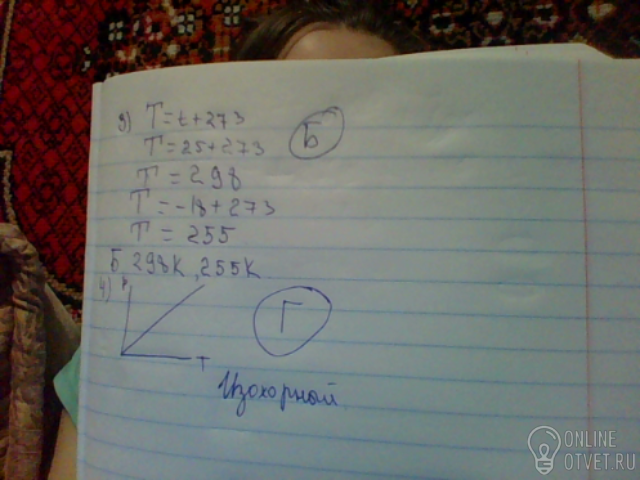 3) T=t+273
Б
T=25+273
T=298
T=-18+273
T=255
Б 298K, 255K
4) P
Г
T
Изохорной
ONLINE
OTVET.RU